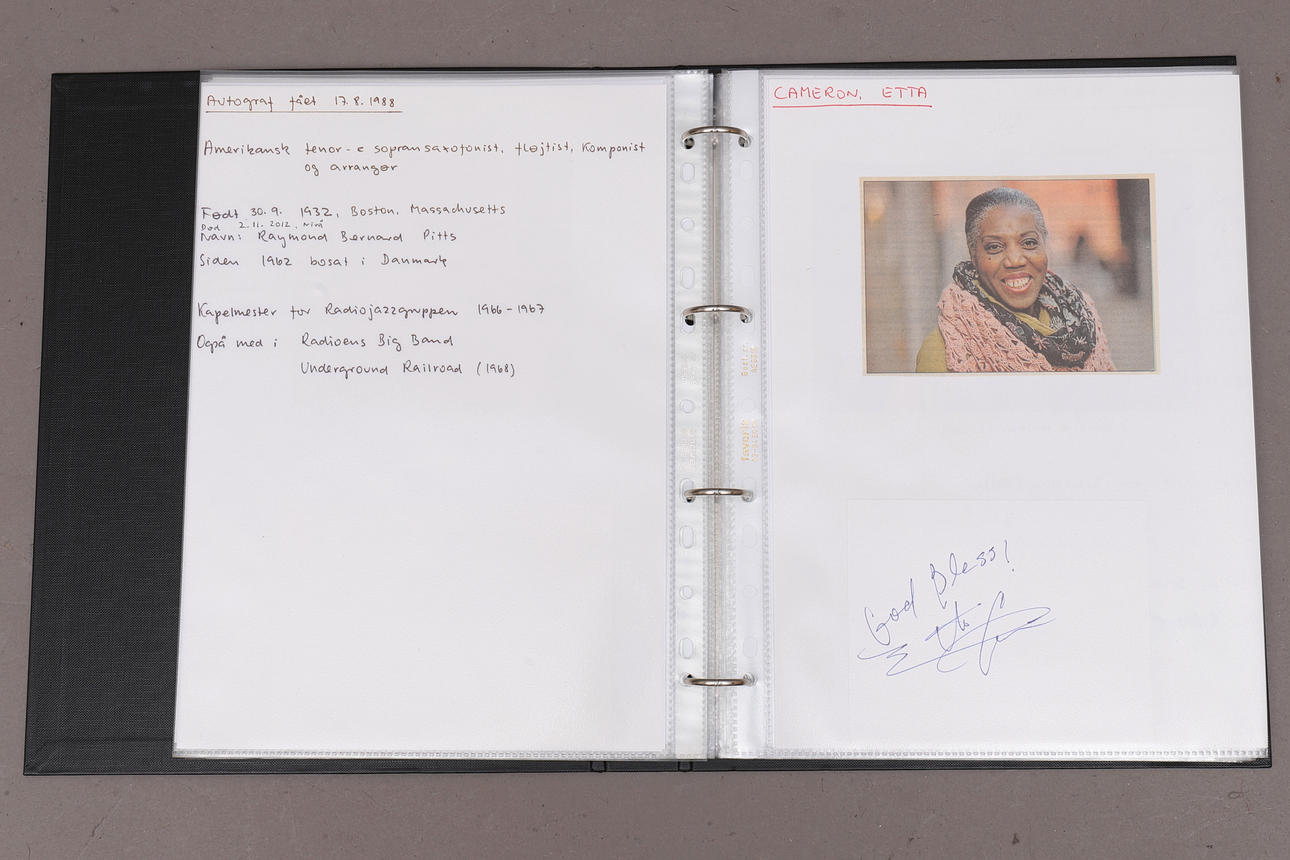 Autograf fået 17.8.1988
Amerikansk tenor- & sopransaxofonist, fløjtist, komponist
og arrangør
Født 30.9. 1932, Boston, Massachusetts
Død 2.11.2012, Nivå
Navn: Raymond Bernard Pitts
Siden 1962 bosat i Danmark
Kapelmester for Radiojazzgruppen 1966-1967
Også med i Radioens Big Band
Underground Railroad (1968)
CAMERON, ETTA
God Bless!
Etta